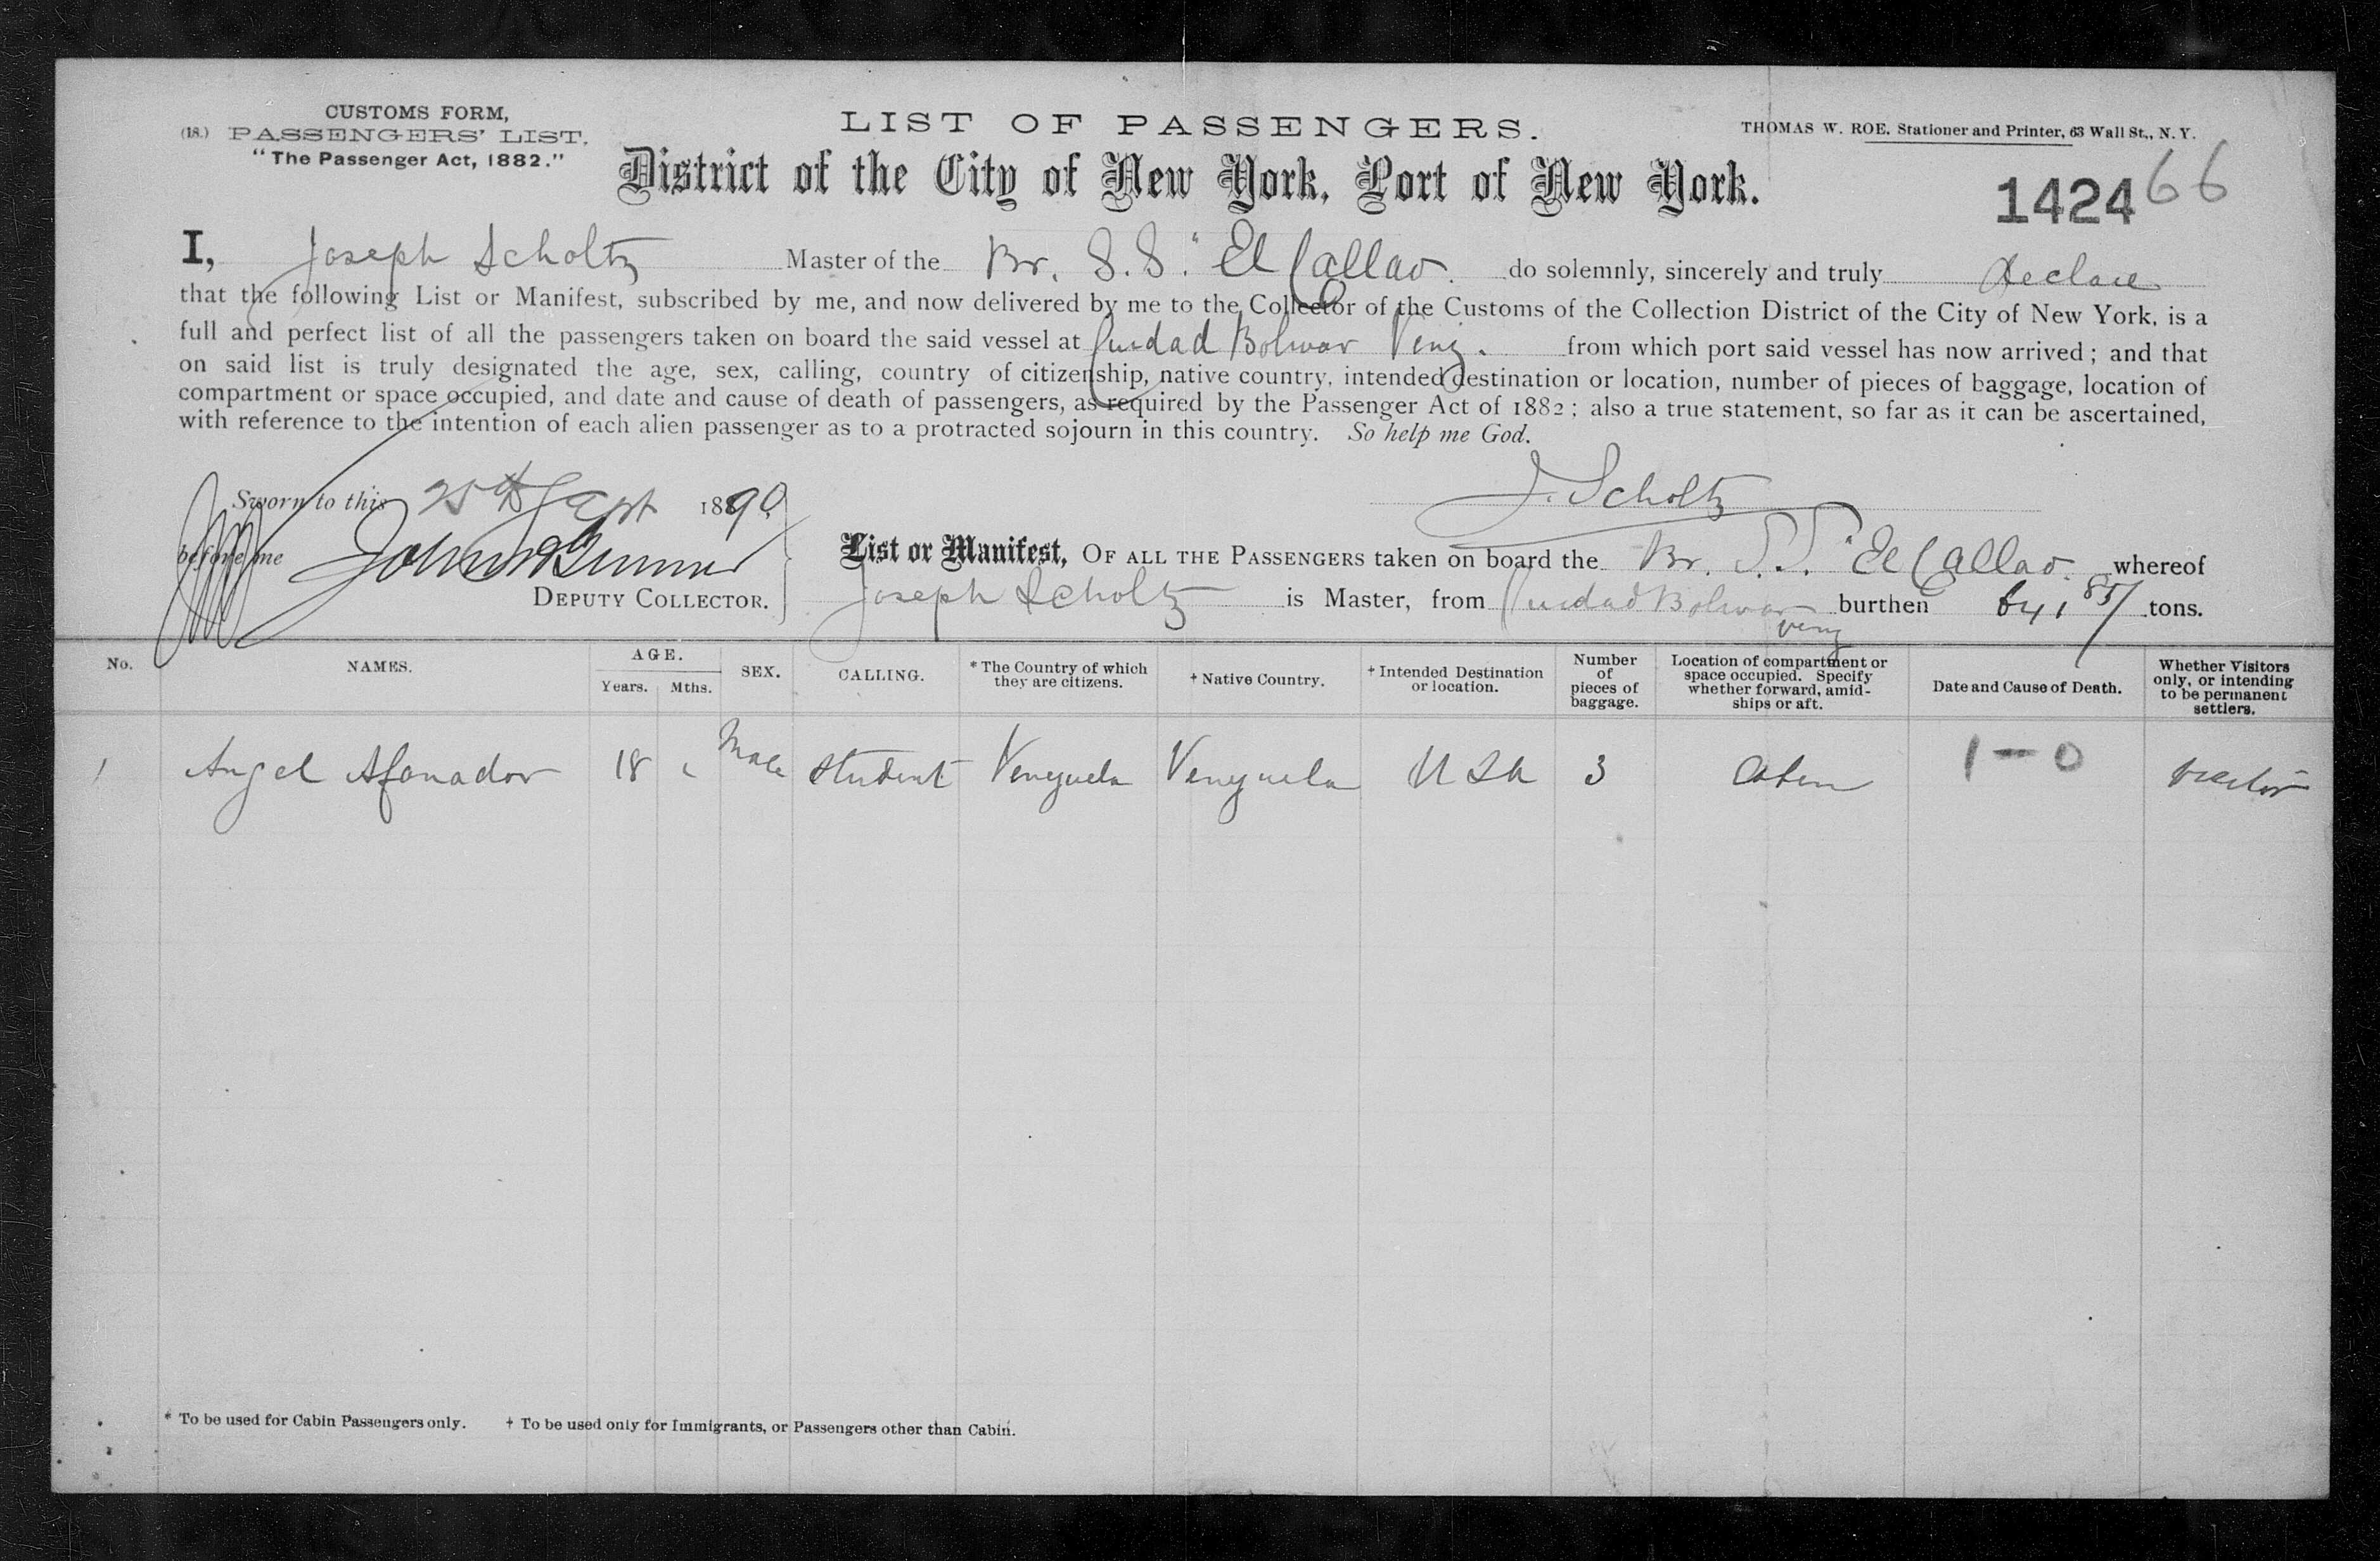 CUSTOMS FORM,
(18.) PASSENGERS' LIST.
"The Passenger Act, 1882."
LIST OF PASSENGERS.
THOMAS W. ROE, Stationer and Printer, 63 Wall St., N. Y.
District of the City of New York, Port of New York.
1424 66
I, Joseph Scholtz Master of the Br. S.S. "El Callao. do solemnly, sincerely and truly declare
that the following List or Manifest, subscribed by me, and now delivered by me to the Collector of the Customs of the Collection District of the City of New York, is a
full and perfect list of all the passengers taken on board the said vessel at Ciudad Bolivar Venz. from which port said vessel has now arrived; and that
on said list is truly designated the age, sex, calling, country of citizenship, native country, intended destination or location, number of pieces of baggage, location of
compartment or space occupied, and date and cause of death of passengers, as required by the Passenger Act of 1882; also a true statement, so far as it can be ascertained,
with reference to the intention of each alien passenger as to a protracted sojourn in this country. So help me God.
J. Scholtz
Sworn to this 25th Sept 1890
before me John
DEPUTY COLLECTOR.
List or Manifest, OF ALL THE PASSENGERS taken on board the Br. S.S. "El Callao. whereof
Joseph Scholtz is Master, from Ciudad Bolivar Venz burthen tons.
No. NAMES. AGE. Years. Mths. SEX. CALLING. * The Country of which they are citizens. † Native Country. † Intended Destination or location. Number of pieces of baggage. Location of compartment or space occupied. Specify whether forward, amidships or aft. Date and Cause of Death. Whether Visitors only, or intending to be permanent settlers.
1 Angel Afanador 18 Male Student Venezuela Venezuela USA 3 Cabin 1-0 visitor
* To be used for Cabin Passengers only. † To be used only for Immigrants, or Passengers other than Cabin.